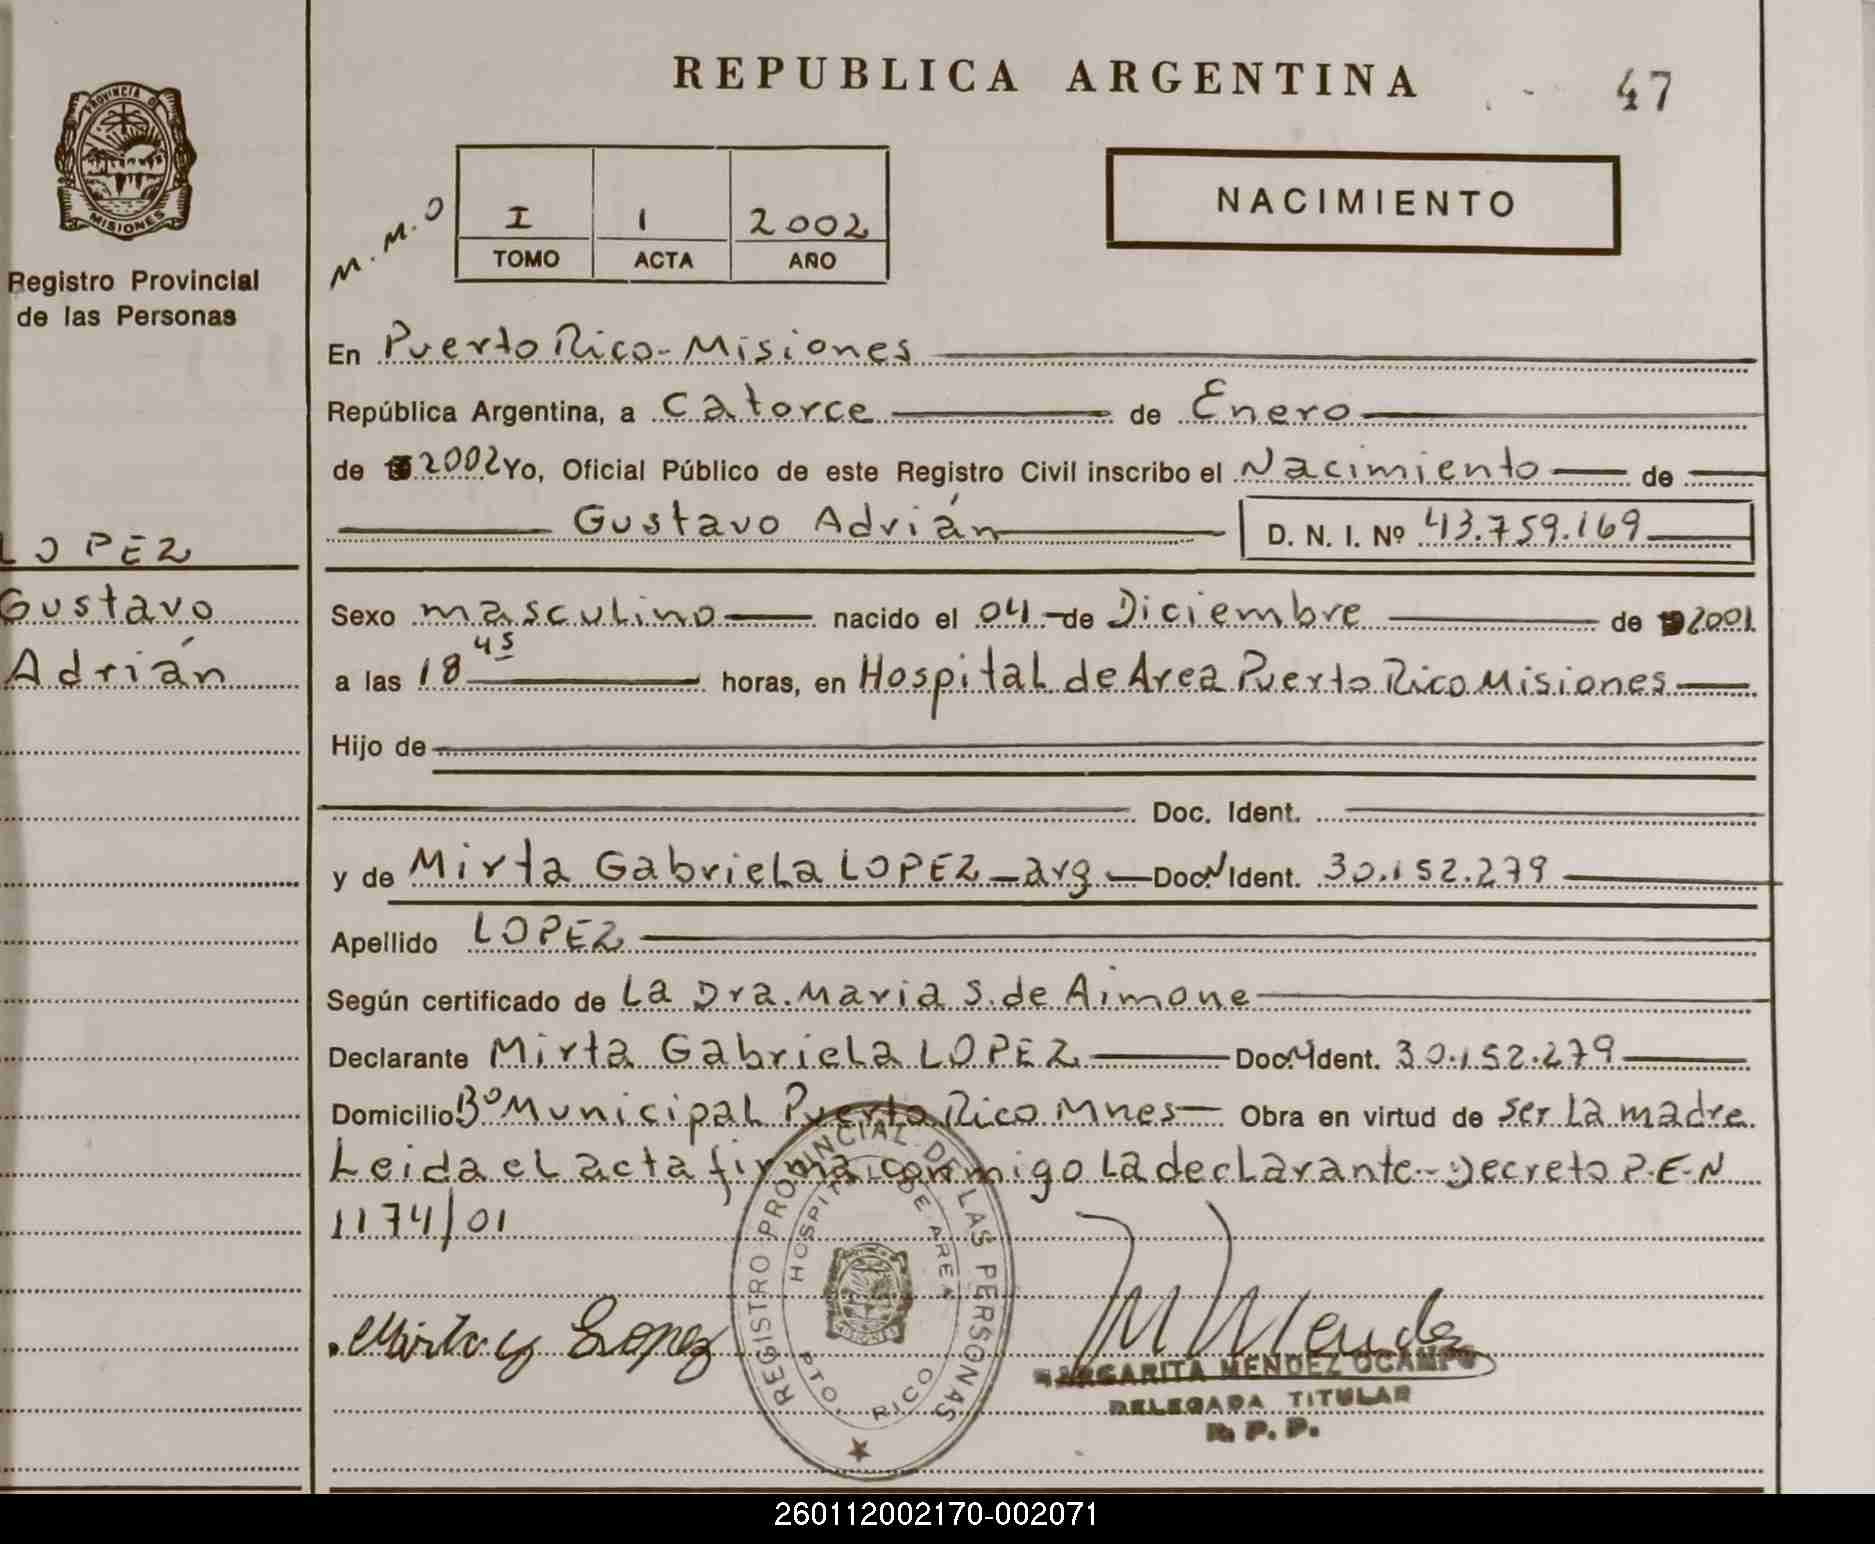 REPUBLICA ARGENTINA
47
PROVINCIA D
MISIONES
Registro Provincial
de las Personas
M.M.O
I 1 2002
TOMO ACTA AÑO
NACIMIENTO
En Puerto Rico - Misiones
República Argentina, a Catorce de Enero
de 2002 Yo, Oficial Público de este Registro Civil inscribo el Nacimiento de
Gustavo Adrián D. N. I. Nº 43.759.169
LOPEZ
Gustavo
Adrián
Sexo masculino nacido el 04 de Diciembre de 2001
a las 18 45 horas, en Hospital de Area Puerto Rico Misiones
Hijo de
Doc. Ident.
y de Mirta Gabriela LOPEZ - arg - Doc. N Ident. 30.152.279
Apellido LOPEZ
Según certificado de La Dra. Maria S. de Aimone
Declarante Mirta Gabriela LOPEZ Doc. N Ident. 30.152.279
Domicilio Bº Municipal Puerto Rico Mnes - Obra en virtud de ser la madre
Leida el acta firma conmigo la declarante - Decreto P.E.N
1174/01
Mirta G Lopez
REGISTRO PROVINCIAL DE LAS PERSONAS
HOSPITAL DE AREA
PTO. RICO
M Mendez
MARGARITA MENDEZ OCAMPO
DELEGADA TITULAR
R. P. P.
260112002170-002071